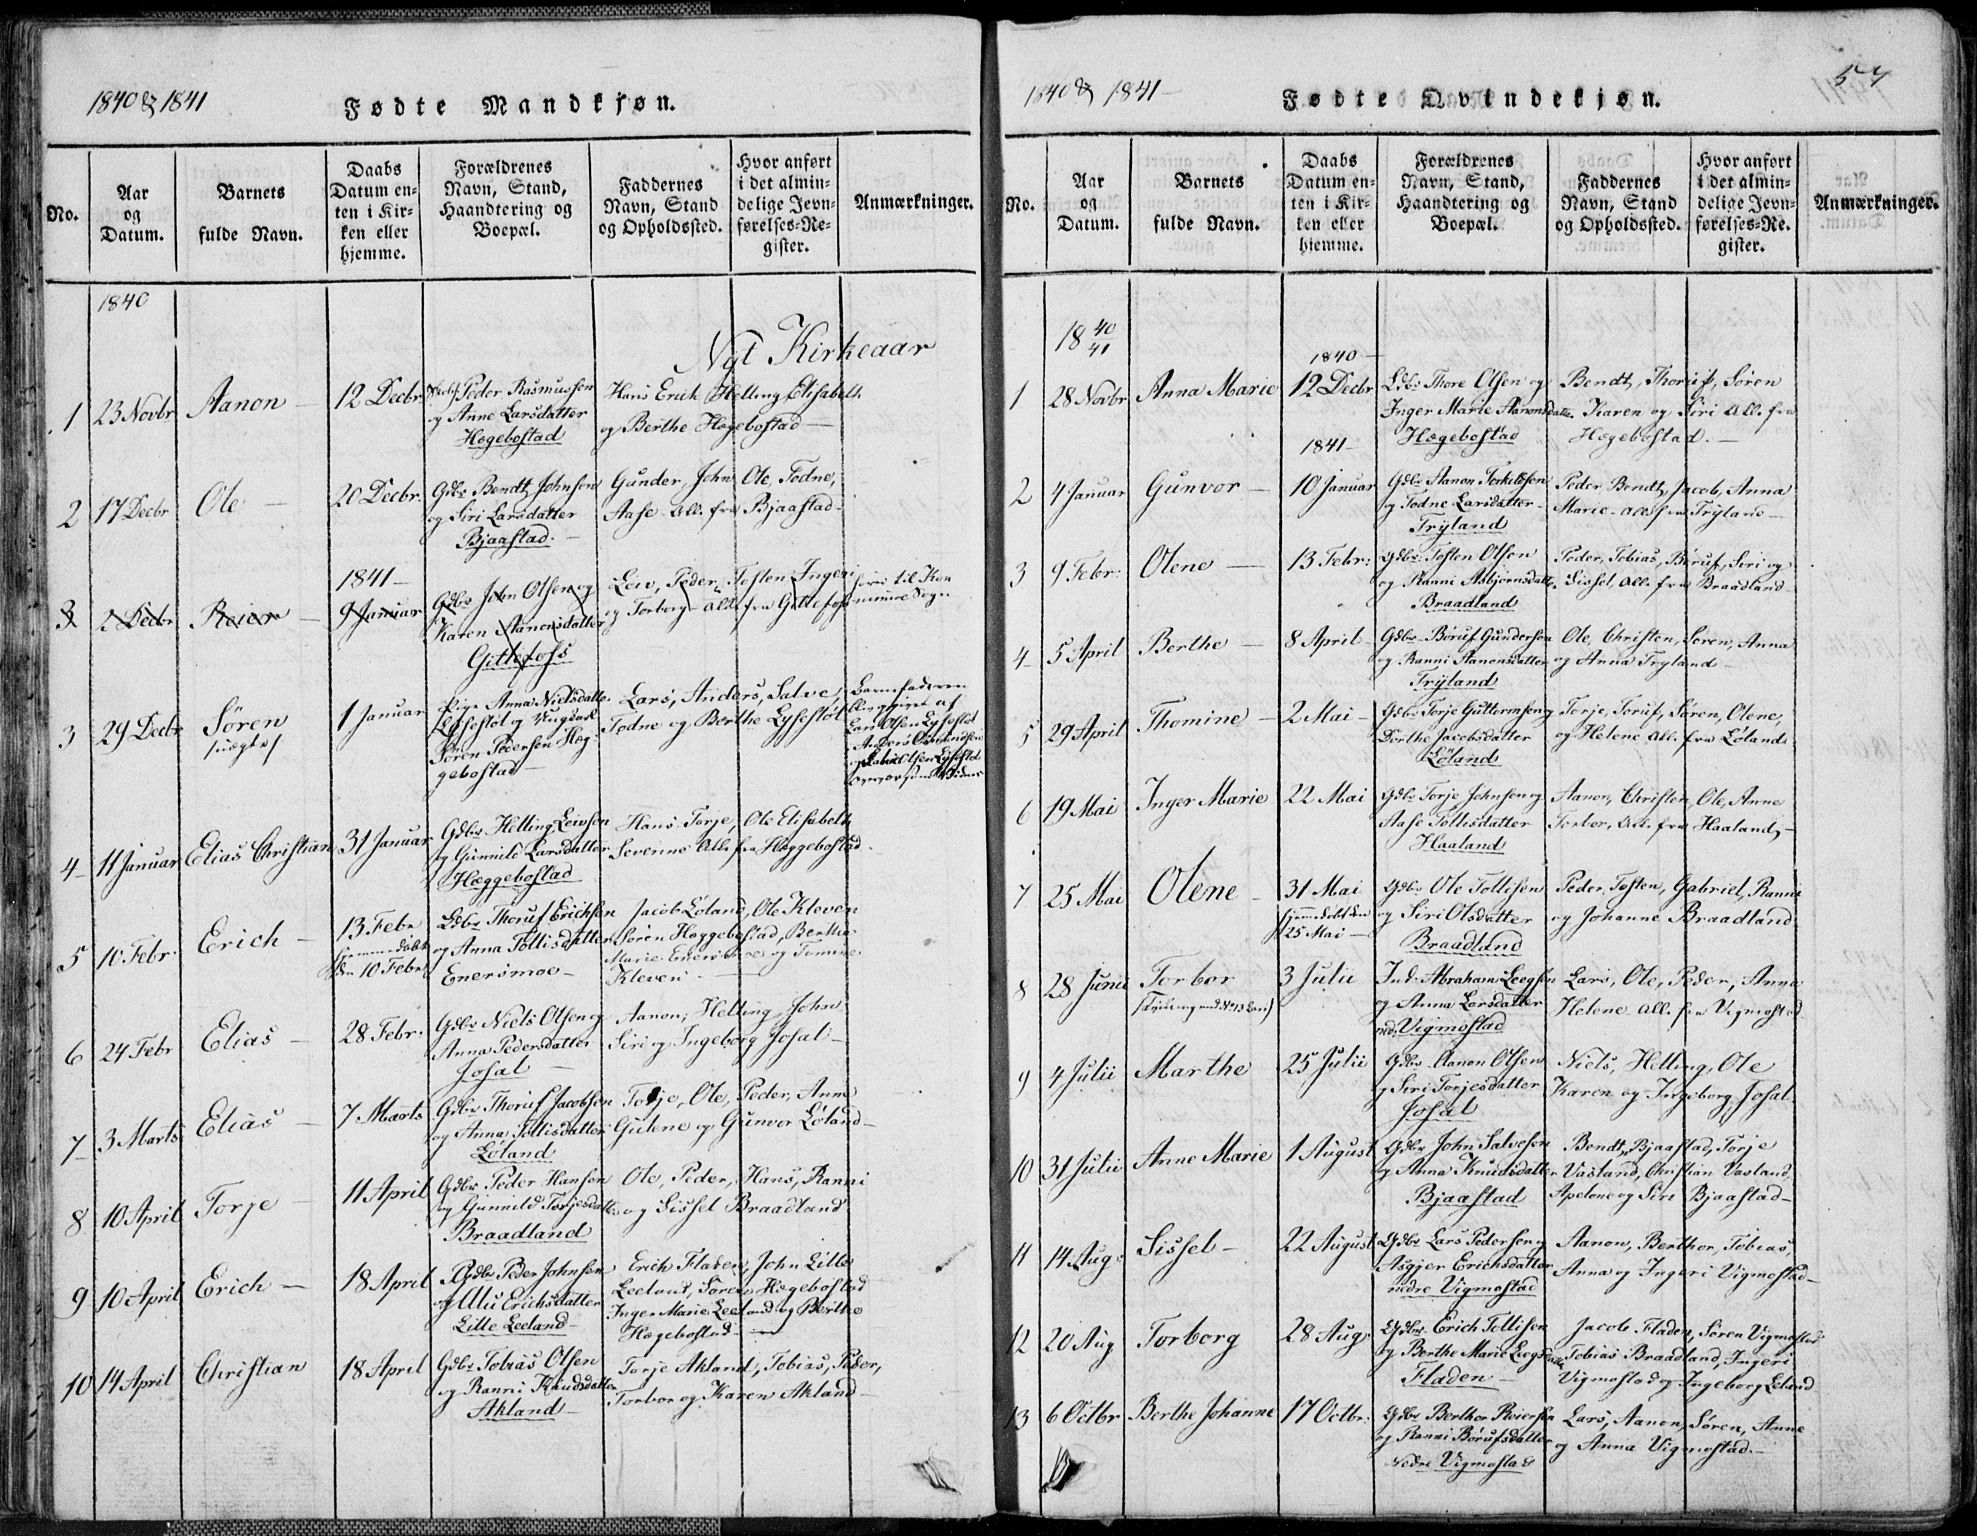 1840 & 1841
Fødte Mandkjøn.
No.
Aar
og
Datum.
Barnets
fulde Navn.
Daabs
Datum en-
ten i Kir-
ken eller
hjemme.
Forældrenes
Navn, Stand,
Haandtering og
Boepæl.
Faddernes
Navn, Stand
og Opholdssted.
Hvor anført
i det almin-
delige Jevn-
førelses-Re-
gister.
Anmærkninger.
1840
Nyt Kirkeaar
1 23 Novbr Aanon 12 Decbr
Peder Rasmussen
og Anne Larsdatter
Hægebostad
Hans Erich Helling Elisabeth
og Berthe Hægebostad
2 17 Decbr Ole 20 Decbr.
Gdbr Bendt Johnsen
og Siri Larsdatter
Bjaastad
Gunder, John Ole, Todne,
Aase all. fra Bjaastad
1841
3 2 Decbr Reier 9 Januar
Gdbr John Olsen og
Karen Aanonsdatter
Gittlefoss
Leiv, Peder, Tosten Ingeri
og Torborg all. fra Gittlefoss
3 29 Decbr Søren
uægte
1 Januar
Pige Anna Nielsdatter
Lysestøl og Ungkarl
Søren Pedersen Hæg-
gebostad
Lars, Anders, Salve,
Todne og Berthe Lysestøl
Barnefaderen
udlagt af
Lars Olsen Lysestøl
4 11 Januar Elias Christian 31 Januar
Gdbr Helling Leivsen
og Gunnild Larsdatter
Hæggebostad
Hans Torje, Ole Elisabeth
Severine all. fra Hæggebostad
5 10 Febr Erich
13 Febr
hjemmedøbt
den 10 Febr
Gdbr Thoruf Erichsen
og Anna Tollisdatter
Enersmoe
Jacob Løland, Ole Kleven
Søren Hæggebostad, Berthe
Marie Enersmoe og Tomine
Kleven
6 24 Febr Elias 28 Febr.
Gdbr Niels Olsen og
Anna Pedersdatter
Josal
Aanon, Helling, John
Siri og Ingeborg Josal
7 3 Marts Elias 7 Marts
Gdbr Thoruf Jacobsen
og Anna Tollisdatter
Løland
Torje, Ole, Peder, Anne
Gulene og Gunvor Løland
8 10 April Torje 11 April
Gdbr Peder Hansen
og Gunnild Torjesdatter
Braadland
Ole, Peder, Hans, Ranni
og Sissel Braadland
9 10 April Erich 18 April
Gdbr Peder Johnsen
og Alu Erichsdatter
Lille Leeland
Erich Fladen, John Lille
Leeland, Søren Hægebostad
Inger Marie Leeland og Berthe
Hægebostad
10 14 April Christian 18 April
Gdbr Tobias Olsen
og Ranni Knudsdatter
Akland
Torje Akland, Tobias, Peder,
Torbor og Karen Akland
57
1840 & 1841
Fødte Qvindekjøn.
No.
Aar
og
Datum.
Barnets
fulde Navn.
Daabs
Datum en-
ten i Kir-
ken eller
hjemme.
Forældrenes
Navn, Stand,
Haandtering og
Boepæl.
Faddernes
Navn, Stand
og Opholdssted.
Hvor anført
i det almin-
delige Jevn-
førelses-Re-
gister.
Anmærkninger.
18 40/41
1840
1 28 Novbr Anna Marie 12 Decbr
Thore Olsen og
Inger Marie Aanonsdatter
Hægebostad
Bendt, Thoruf, Søren
Karen og Siri all. fra
Hægebostad.
1841
2 4 Januar Gunvor 10 Januar
Gdbr Aanon Torkildsen
og Todne Larsdatter
Tryland
Peder, Bendt, Jacob, Anna
Marie all. fra Tryland
3 9 Febr: Olene 13 Febr:
Gdbr Tosten Olsen
og Ranni Asbjørnsdatter
Braadland
Peder, Tobias, Børuf, Siri og
Sissel, all. fra Braadland
4 5 April Berthe 8 April
Gdbr Børuf Gundersen
og Ranni Aanonsdatter
Tryland
Ole, Christen, Søren, Anna
og Anna Tryland
5 29 April Thomine 2 Mai
Gdbr Torje Guttormsen og
Dorthe Jacobsdatter
Løland
Torje, Toruf, Søren, Olene,
og Helene all. fra Løland
6 19 Mai Inger Marie 22 Mai
Gdbr Torje Johnsen og
Aase Tollisdatter
Haaland
Aanon, Christen, Ole, Anne
Torbor, all. fra Haaland
7 25 Mai Olene
31 Mai
hjemmedøbt den
25 Mai
Gdbr Ole Tollisen
og Siri Olsdatter
Braadland
Peder, Tosten, Gabriel, Ranni
og Johanne Braadland
8 28 Junii Torbor
3 Julii
Ind. Abraham Leegsen
og Anna Larsdatter
nedre Vigmostad
Lars, Ole, Peder, Anna
Helene all. fra Vigmostad
9 4 Julii Marthe 25 Julii
Gdbr Aanon Olsen
og Siri Torjesdatter
Josal
Niels, Helling, Ole
Karen og Ingeborg Josal
10 31 Julii Anne Marie 1 August
Gdbr John Salvesen
og Anna Knudsdatter
Bjaastad
Bendt Bjaastad, Torje
Vasland, Christian Vasland,
Apelone og Siri Bjaastad
11 14 Aug: Sissel 22 August
Gdbr Lars Pedersen og
Asgjer Erichsdatter
nedre Vigmostad
Aanon, Berthor, Tobias,
Anna og Ingeri Vigmostad
12 20 Aug Torborg 28 Aug:
Gdbr Erich Tollisen
og Berthe Marie Leegsdatter
Fladen
Jacob Fladen, Søren Vigmostad
Tobias Braadland, Ingeri
Vigmostad og Ingeborg Leland
13 6 Octbr Berthe Johanne 17 Octbr:
Gdbr Berthor Reiersen
og Ranni Børufsdatter
Nedre Vigmostad
Lars, Aanon, Søren, Anne
og Anna Vigmostad.